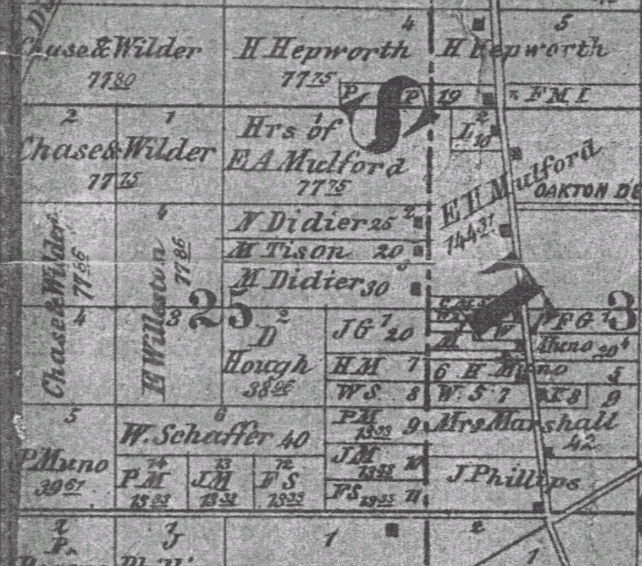 4
5
Chase & Wilder
77 80
H Hepworth
77 75
H Hepworth
P
P
19
F M I
2
1
Chase & Wilder
77 75
Hrs of 1
E A Mulford
77 75
L 2
10
E H Mulford
144 21
OAKTON
N Didier 25 2
M Tison 20
M Didier 30
Chase & Wilder
77 66
4
4
E Willeston
77 86
3
25
D 2
Hough
38 96
J G 7 20
H M 7
W S. 8
P F G 1
3
Muno 20 4
6 H Muno 5
W. S 7
8
9
5
P Muno
39 67
6
W. Schaffer 40
14
P M
13 33
13
J M
13 33
12
F S
13 33
P M 9
13 33
J M 10
13 33
F S 13 33 11
Mrs Marshall
42
J Phillips
2
P.
3
1
2
1